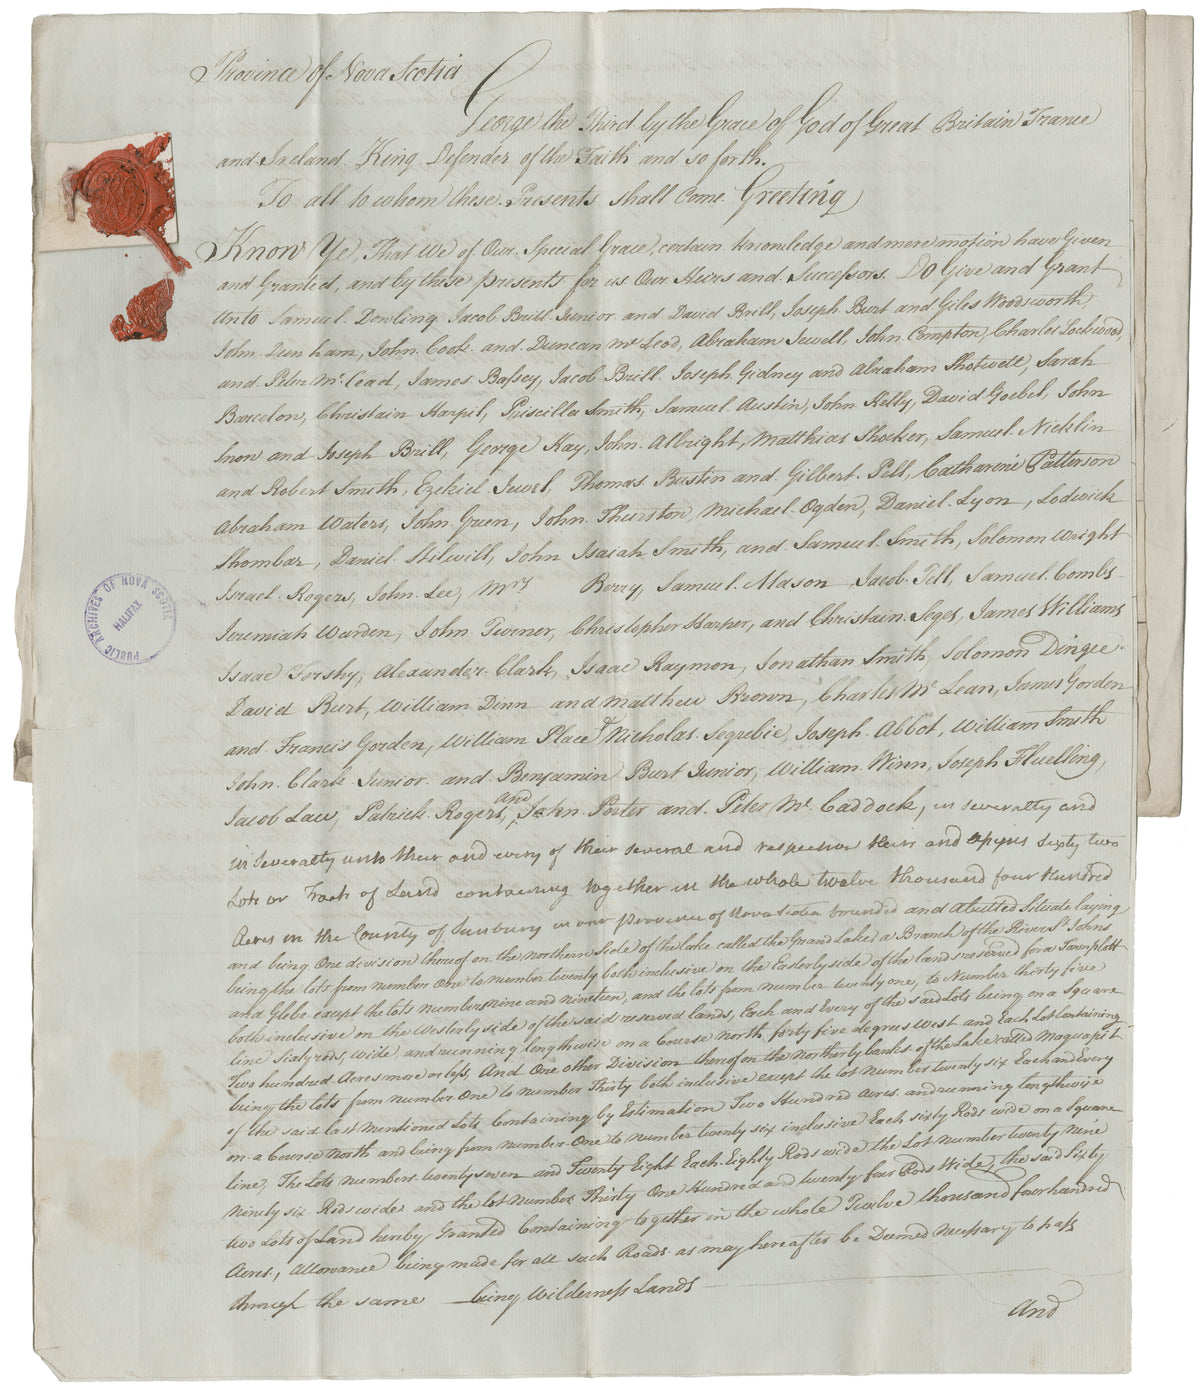 Province of Nova Scotia
George the Third by the Grace of God of Great Britain France
and Ireland King Defender of the Faith and so forth.
To all to whom these Presents shall Come Greeting
Know Ye, That We of Our Special Grace, certain knowledge and mere motion have Given
and Granted, and by these presents for us Our Heirs and Successors. Do Give and Grant
unto Samuel Dowling Jacob Brill Junior and David Brill, Joseph Burt and Giles Woodsworth
John Dunham, John Cook and Duncan Mc Leod, Abraham Jewell, John Compton, Charles Lockwood,
and Peter Mc lead, James Bassey, Jacob Brill Joseph Gidney and Abraham Shotwell, Sarah
Barcelow, Christain Harpil, Priscilla Smith, Samuel Austin, John Kelly, David Goebel, John
Snow and Joseph Brill, George Kay, John Albright, Matthias Shocker, Samuel Nicklin
and Robert Smith, Ezekiel Jewel, Thomas Bustin and Gilbert Pell, Catharine Patterson
Abraham Waters, John Green, John Thurston, Michael Ogden, Daniel Lyon, Lodwick
Shombar, Daniel Stilwill, John Isaiah Smith, and Samuel Smith, Solomon Wright
Israel Rogers, John Lee, Mrs Berry, Samuel Mason Jacob Tell, Samuel Combs
Jeremiah Warden, John Turner, Christopher Harper, and Christain Seges, James Williams
Isaac Torshy, Alexander Clark, Isaac Raymon, Jonathan Smith, Solomon Dingee
David Burt, William Dinn and Matthew Brown, Charles Mc Lean, James Gorden
and Francis Gorden, William Place & Nicholas Segubie, Joseph Abbot, William Smith
John Clark Junior and Benjamin Burt Junior, William Winn, Joseph Fluelling,
Jacob Law, Patrick Rogers, and John Porter and Peter Mc Caddock, in severalty and
in Severalty unto their and every of their several and respective Heirs and Assigns Sixty two
Lots or Tracts of Land containing together in the whole twelve thousand four Hundred
Acres in the County of Sunbury in our province of Nova Scotia bounded and Abutted Situate laying
and being One division thereof on the northern Side of the lake called the Grand Lake, a Branch of the River St. Johns
being the lots from number one to number twenty both inclusive on the Easterly side of the lands reserved for a Townplatt
and Glebe except the lots numbers nine and nineteen, and the lots from number twenty one, to Number thirty five
both inclusive on the Westerly side of the said reserved lands, Each and Every of the said Lots being on a Square
line Sixty rods, wide, and running lengthwise on a Course North forty five degrees West and Each Lot Containing
Two hundred Acres more or less, And One other Division thereof on the Northerly banks of the Lake called Maquapit
being the lots from Number One to Number Thirty both inclusive except the lot Number twenty six Each and Every
of the said last mentioned Lots Containing by Estimation Two Hundred Acres and running lengthwise
on a Course North and being from number One to number twenty six inclusive Each sixty Rods wide on a Square
line, The Lots numbers twenty seven and Twenty Eight Each Eighty Rods wide the Lot Number twenty Nine
Ninety six Rods wide and the lot Number Thirty One Hundred and twenty four Rods Wide, the said Sixty
two Lots of Land hereby Granted Containing together in the whole Twelve thousand four hundred
Acres, Allowance being made for all such Roads as may hereafter be Deemed Necessary to pass
through the same being Wilderness Lands
And
PUBLIC ARCHIVES OF NOVA SCOTIA
HALIFAX